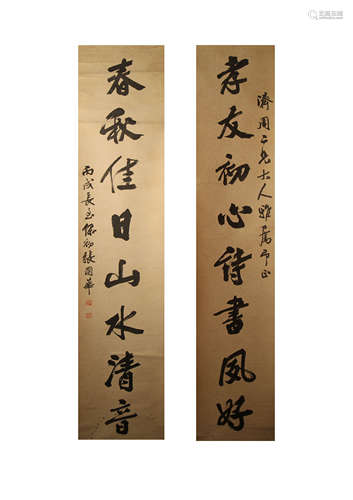 孝友初心詩書風好
濟周二兄大人雅屬即正
春秋佳日山水清音
丙戌長至保初張國華